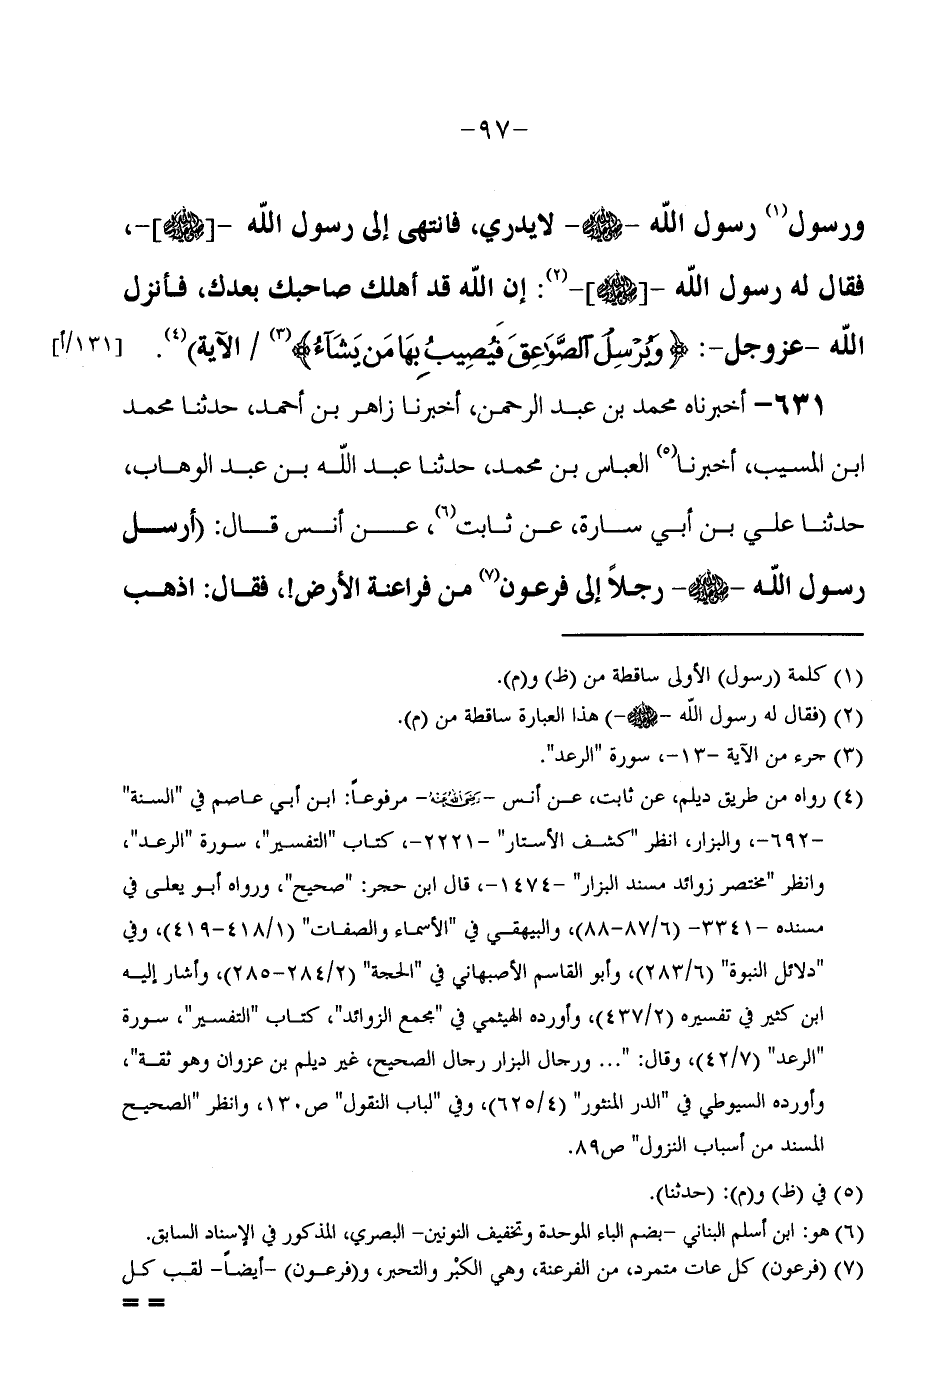 -٩٧-
ورسول(١) رسول الله -ﷺ- لايدري، فانتهى إلى رسول الله -[ﷺ]-،
فقال له رسول الله -[ﷺ]-(٢): إن الله قد أهلك صاحبك بعدك، فأنزل
الله -عزوجل-: ﴿وَيُرْسِلُ ٱلصَّوَٰعِقَ فَيُصِيبُ بِهَا مَن يَشَآءُ﴾(٣) / الآية)(٤). [١٣١/أ]
٦٣١- أخبرناه محمد بن عبد الرحمن، أخبرنا زاهر بن أحمد، حدثنا محمد
ابن المسيب، أخبرنا(٥) العباس بن محمد، حدثنا عبد الله بن عبد الوهاب،
حدثنا علي بن أبي سارة، عن ثابت(٦)، عن أنس قال: (أرسل
رسول الله -ﷺ- رجلاً إلى فرعون(٧) من فراعنة الأرض!، فقال: اذهب
(١) كلمة (رسول) الأولى ساقطة من (ظ) و(م).
(٢) (فقال له رسول الله -ﷺ-) هذا العبارة ساقطة من (م).
(٣) جزء من الآية -١٣-، سورة "الرعد".
(٤) رواه من طريق ديلم، عن ثابت، عن أنس -رضي الله عنه- مرفوعاً: ابن أبي عاصم في "السنة"
-٦٩٢-، والبزار، انظر "كشف الأستار" -٢٢٢١-، كتاب "التفسير"، سورة "الرعد"،
وانظر "مختصر زوائد مسند البزار" -١٤٧٤-، قال ابن حجر: "صحيح"، ورواه أبو يعلى في
مسنده -٣٣٤١- (٨٧/٦-٨٨)، والبيهقي في "الأسماء والصفات" (٤١٨/١-٤١٩)، وفي
"دلائل النبوة" (٢٨٣/٦)، وأبو القاسم الأصبهاني في "الحجة" (٢٨٤/٢-٢٨٥)، وأشار إليه
ابن كثير في تفسيره (٤٣٧/٢)، وأورده الهيثمي في "مجمع الزوائد"، كتاب "التفسير"، سورة
"الرعد" (٤٢/٧)، وقال: "... ورجال البزار رجال الصحيح، غير ديلم بن عزوان وهو ثقة"،
وأورده السيوطي في "الدر المنثور" (٦٢٥/٤)، وفي "لباب النقول" ص١٣٠، وانظر "الصحيح
المسند من أسباب النزول" ص٨٩.
(٥) في (ظ) و(م): (حدثنا).
(٦) هو: ابن أسلم البناني -بضم الباء الموحدة وتخفيف النونين- البصري، المذكور في الإسناد السابق.
(٧) (فرعون) كل عات متمرد، من الفرعنة، وهي الكبْر والتجبر، و(فرعون) -أيضاً- لقب كل
= =